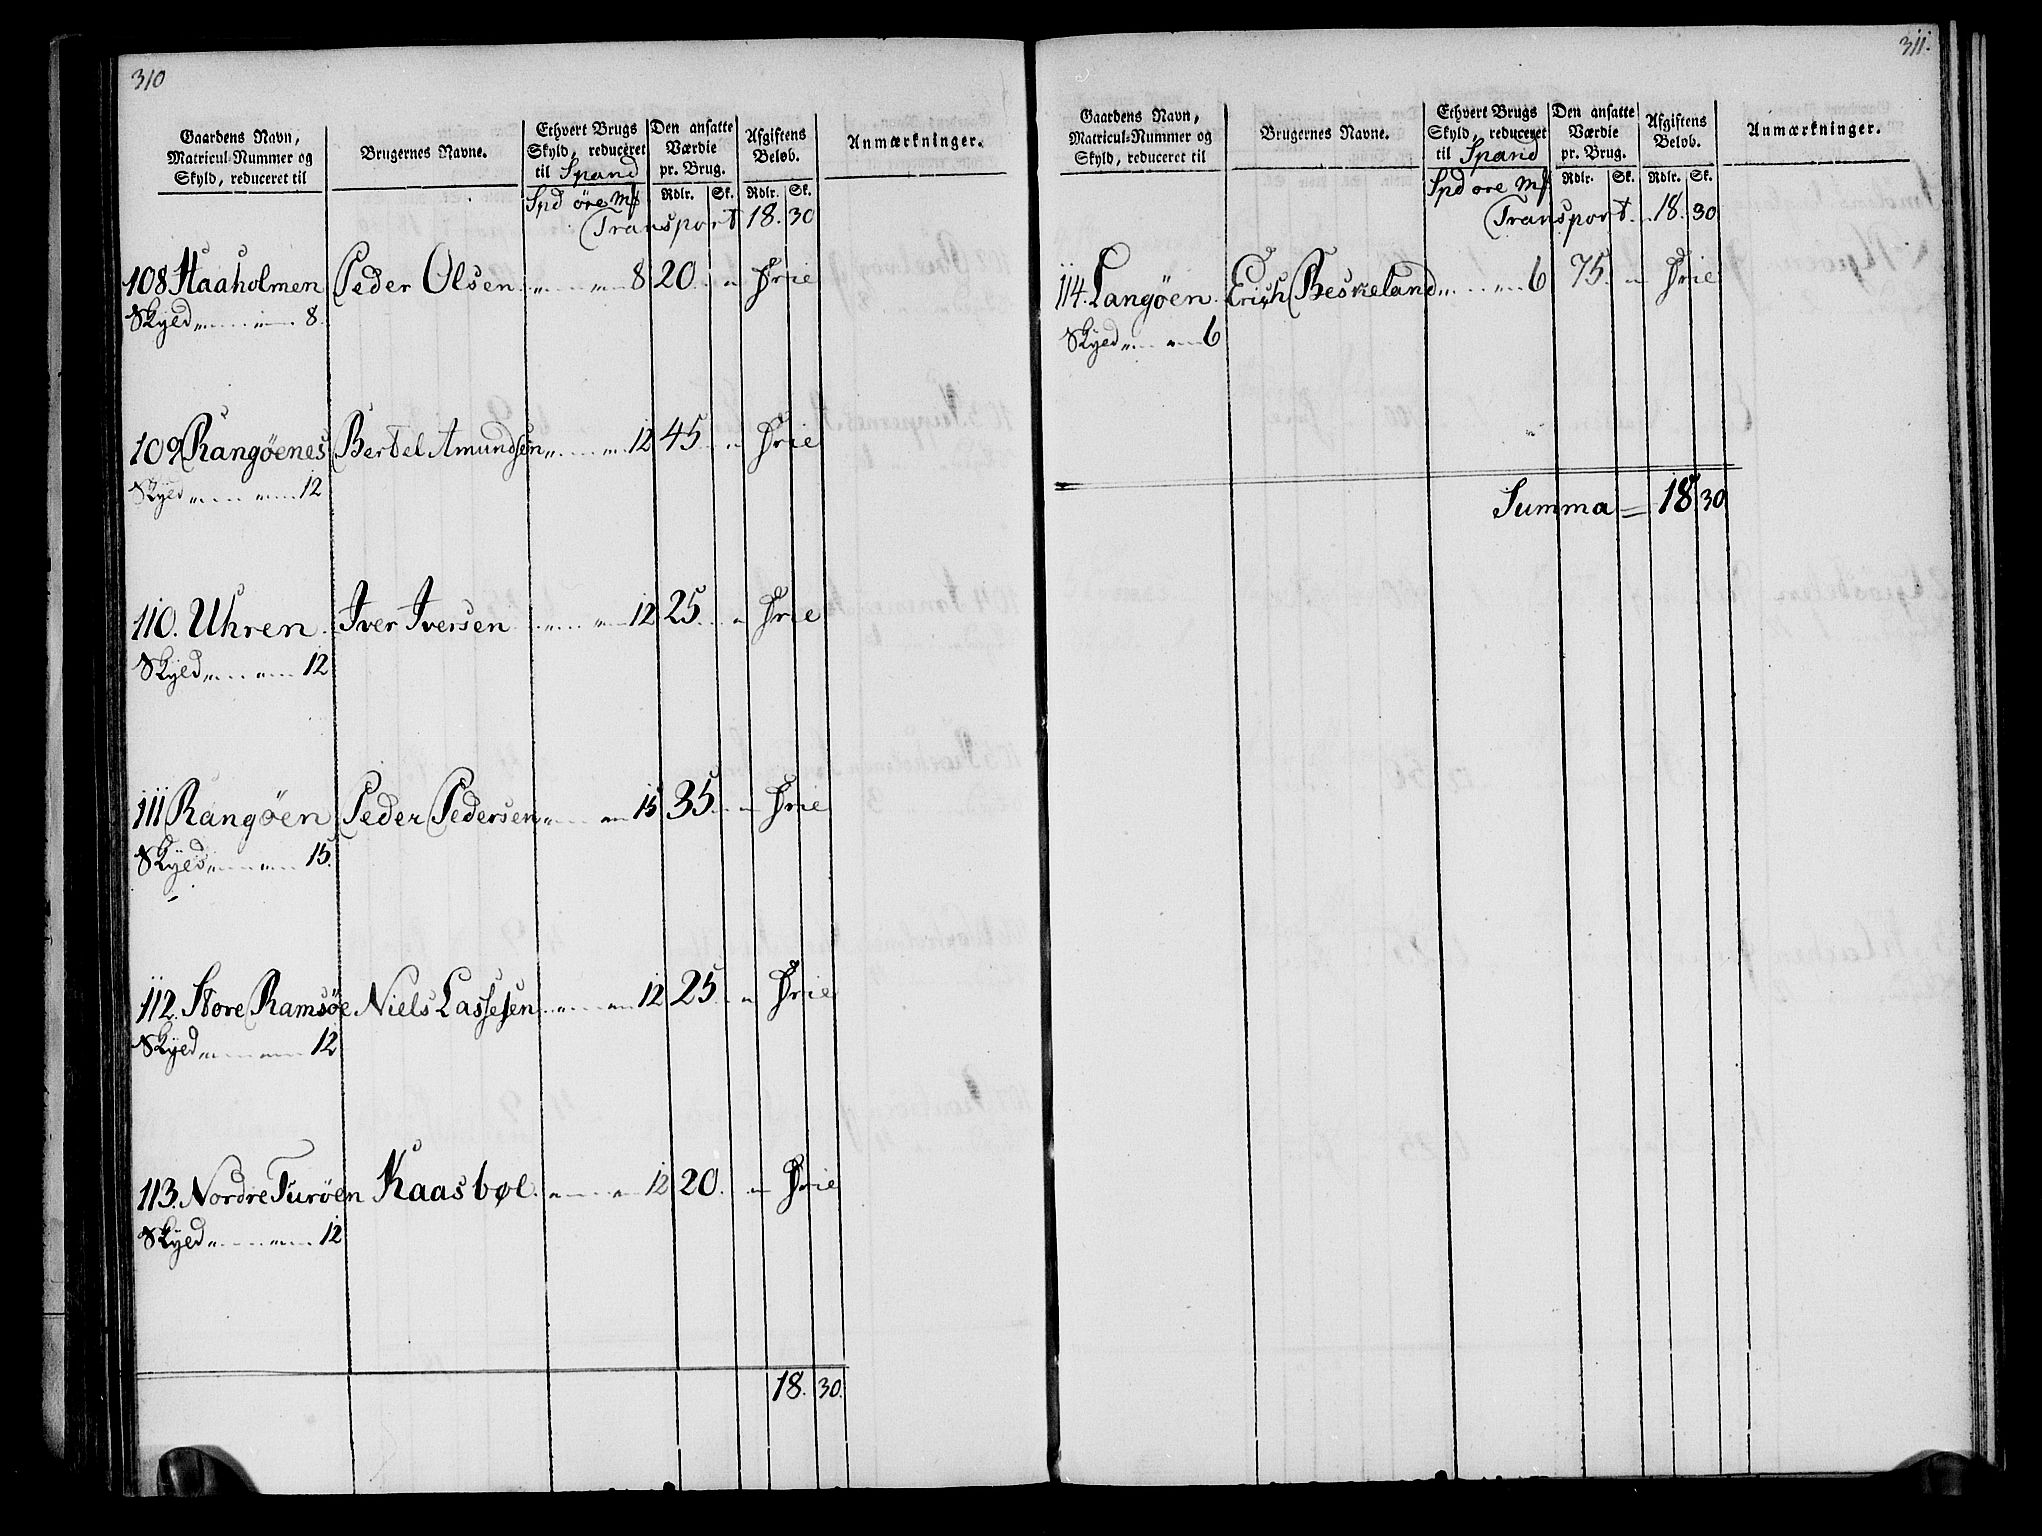 310
Gaardens Navn,
Matricul-Nummer og
Skyld, reduceret til
Brugernes Navne.
Ethvert Brugs
Skyld, reduceret
til Spand
Spd öre Mk
Den ansatte
Værdie
pr. Brug.
Rdlr. Sk.
Afgiftens
Beløb.
Rdlr. Sk.
Anmærkninger.
Transport 18. 30
108 Haaholmen Peder Olsen 8 20 " Frie
Skyld " " 8.
109 Rangöenes Bertel Amundsen " " 12 45 " Frie
Skyld " " 12
110. Uhren Iver Iversen " " 12 25 " Frie
Skyld " " 12
111 Rangöen Peder Pedersen " " 15 35 " Frie
Skyld " " 15.
112. Store Ramsöe Niels Lassesen " " 12 25 " Frie
Skyld " " 12
113. Nordre Turöen Kaasbøl " " 12 20. " Frie
Skyld " " 12
18. 30.
311.
Gaardens Navn,
Matricul-Nummer og
Skyld, reduceret til
Brugernes Navne.
Ethvert Brugs
Skyld, reduceret
til Spand
Spd ore Mk
Den ansatte
Værdie
pr. Brug.
Rdlr. Sk.
Afgiftens
Beløb.
Rdlr. Sk.
Anmærkninger.
Transport 18. 30
114. Langöen Erich Beskeland " " 6 75. " Frie
Skyld " " 6
Summa = 18 30